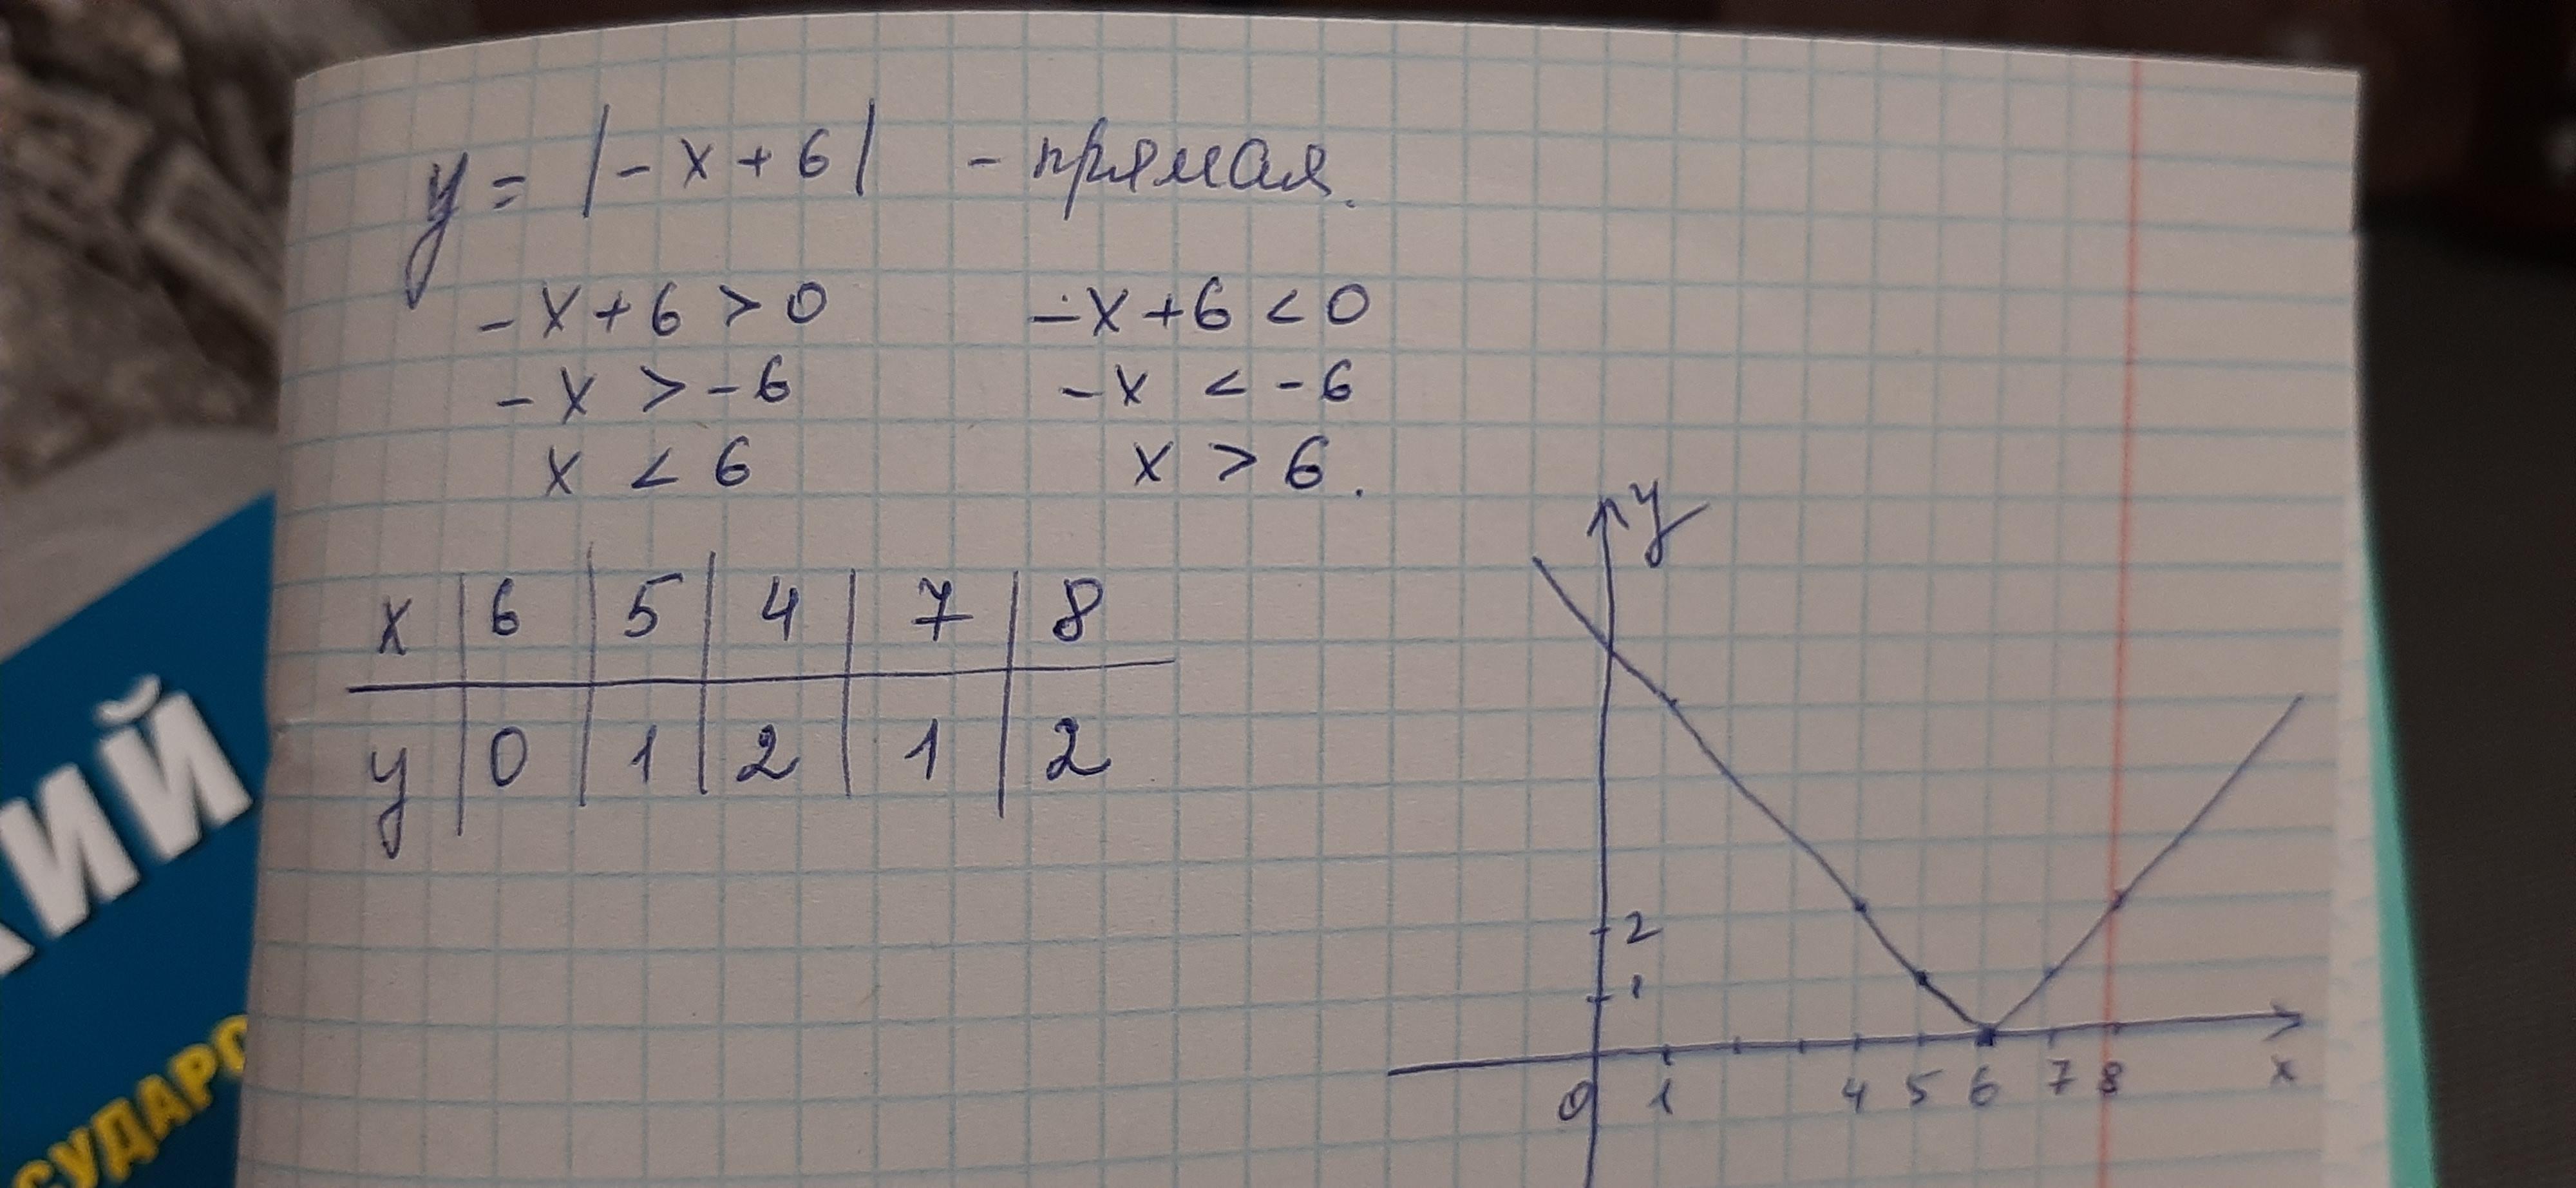 y = |-x+6| - прямая.
-x+6 > 0 -x+6 < 0
-x > -6 -x < -6
x < 6 x > 6.
x 6 5 4 7 8
y 0 1 2 1 2
y
2
1
0 1 4 5 6 7 8 x
КИЙ
СУДАРС